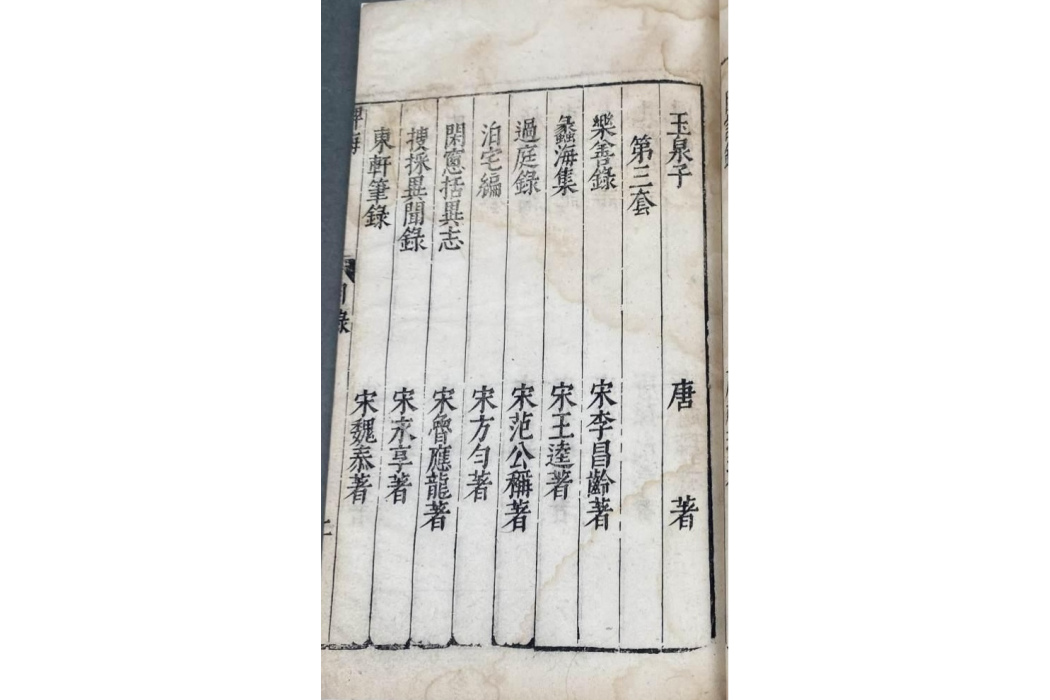 玉泉子 唐 著
第三套
樂善錄 宋李昌齡著
蠡海集 宋王逵著
過庭錄 宋范公稱著
泊宅編 宋方勺著
閑窻括異志 宋魯應龍著
搜採異聞錄 宋永亨著
東軒筆錄 宋魏泰著
稗海
目錄
二